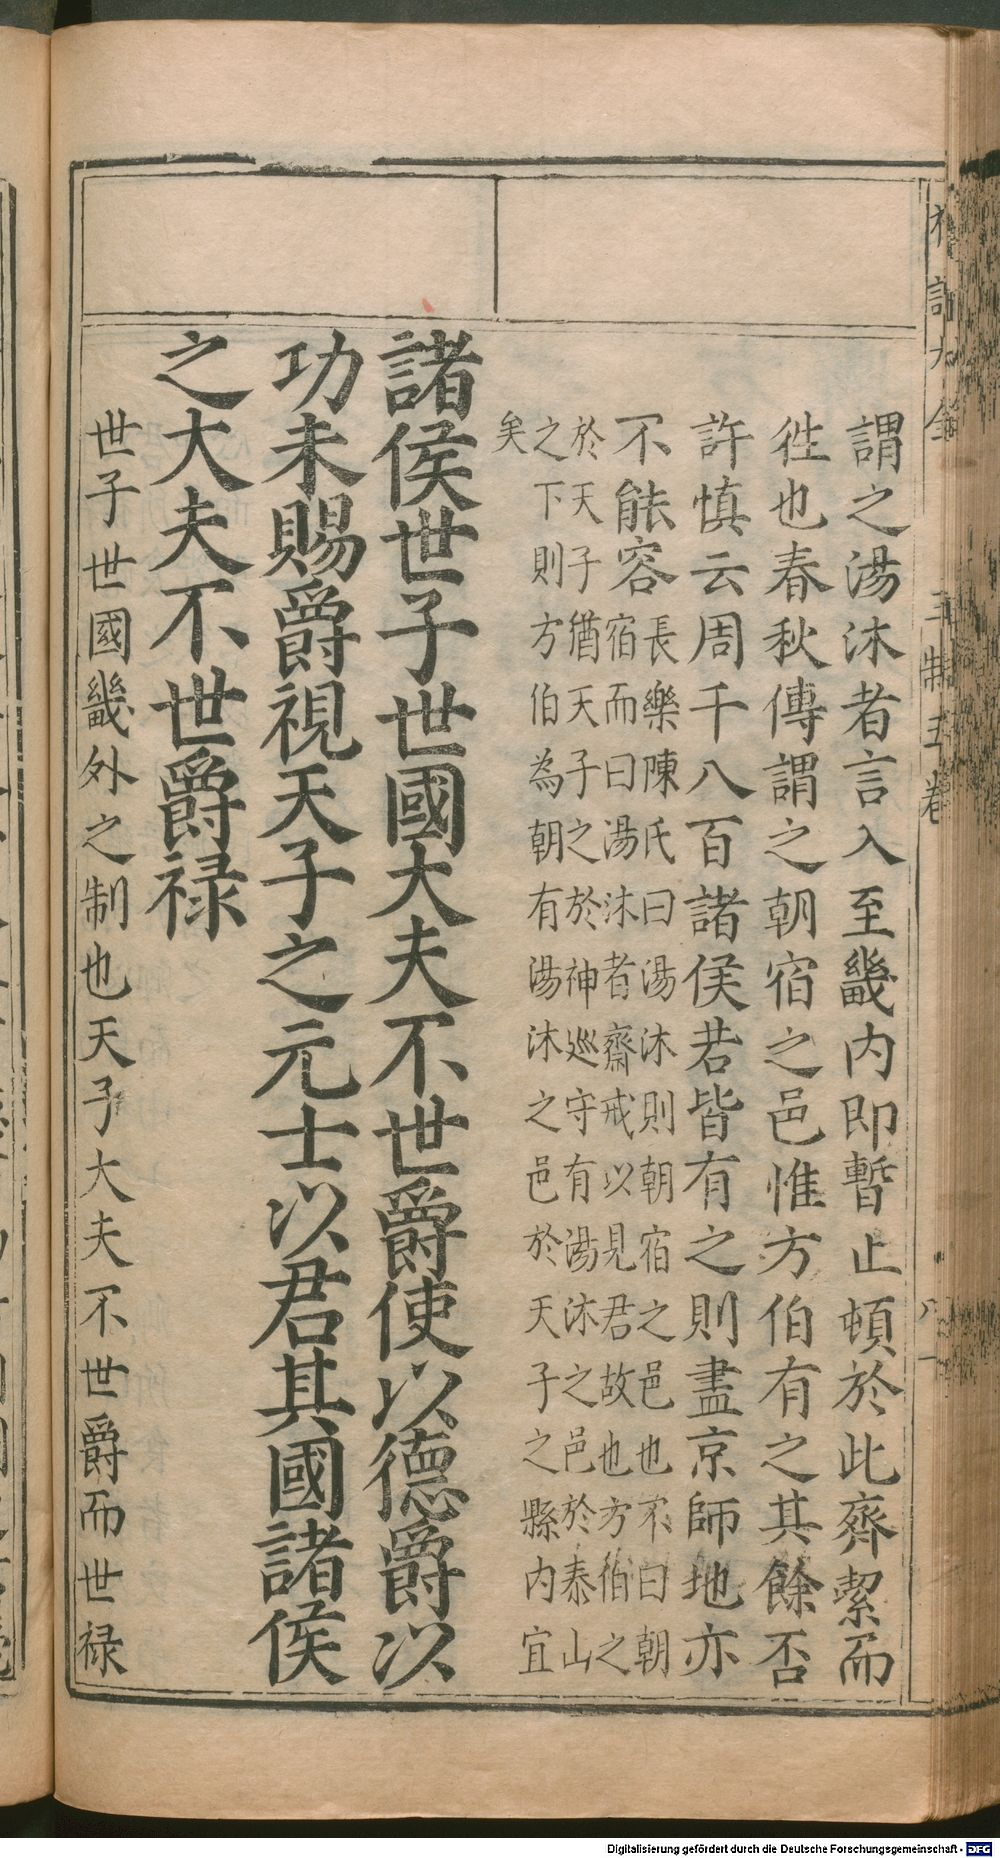 謂之湯沐者言入至畿内即暫止頓於此齊㓗而
徃也春秋傳謂之朝宿之邑惟方伯有之其餘否
許慎云周千八百諸侯若皆有之則盡京師地亦
不能容
長樂陳氏曰湯沐則朝宿之邑也不曰朝
宿而曰湯沐者齋戒以見君故也方伯之
於天子猶天子之於神巡守有湯沐之邑於泰山
之下則方伯為朝有湯沐之邑於天子之縣内宜
矣
諸侯世子世國大夫不世爵使以德爵以
功未賜爵視天子之元士以君其國諸侯
之大夫不世爵禄
世子世國畿外之制也天子大夫不世爵而世禄
王制五卷
Digitalisierung gefördert durch die Deutsche Forschungsgemeinschaft - DFG